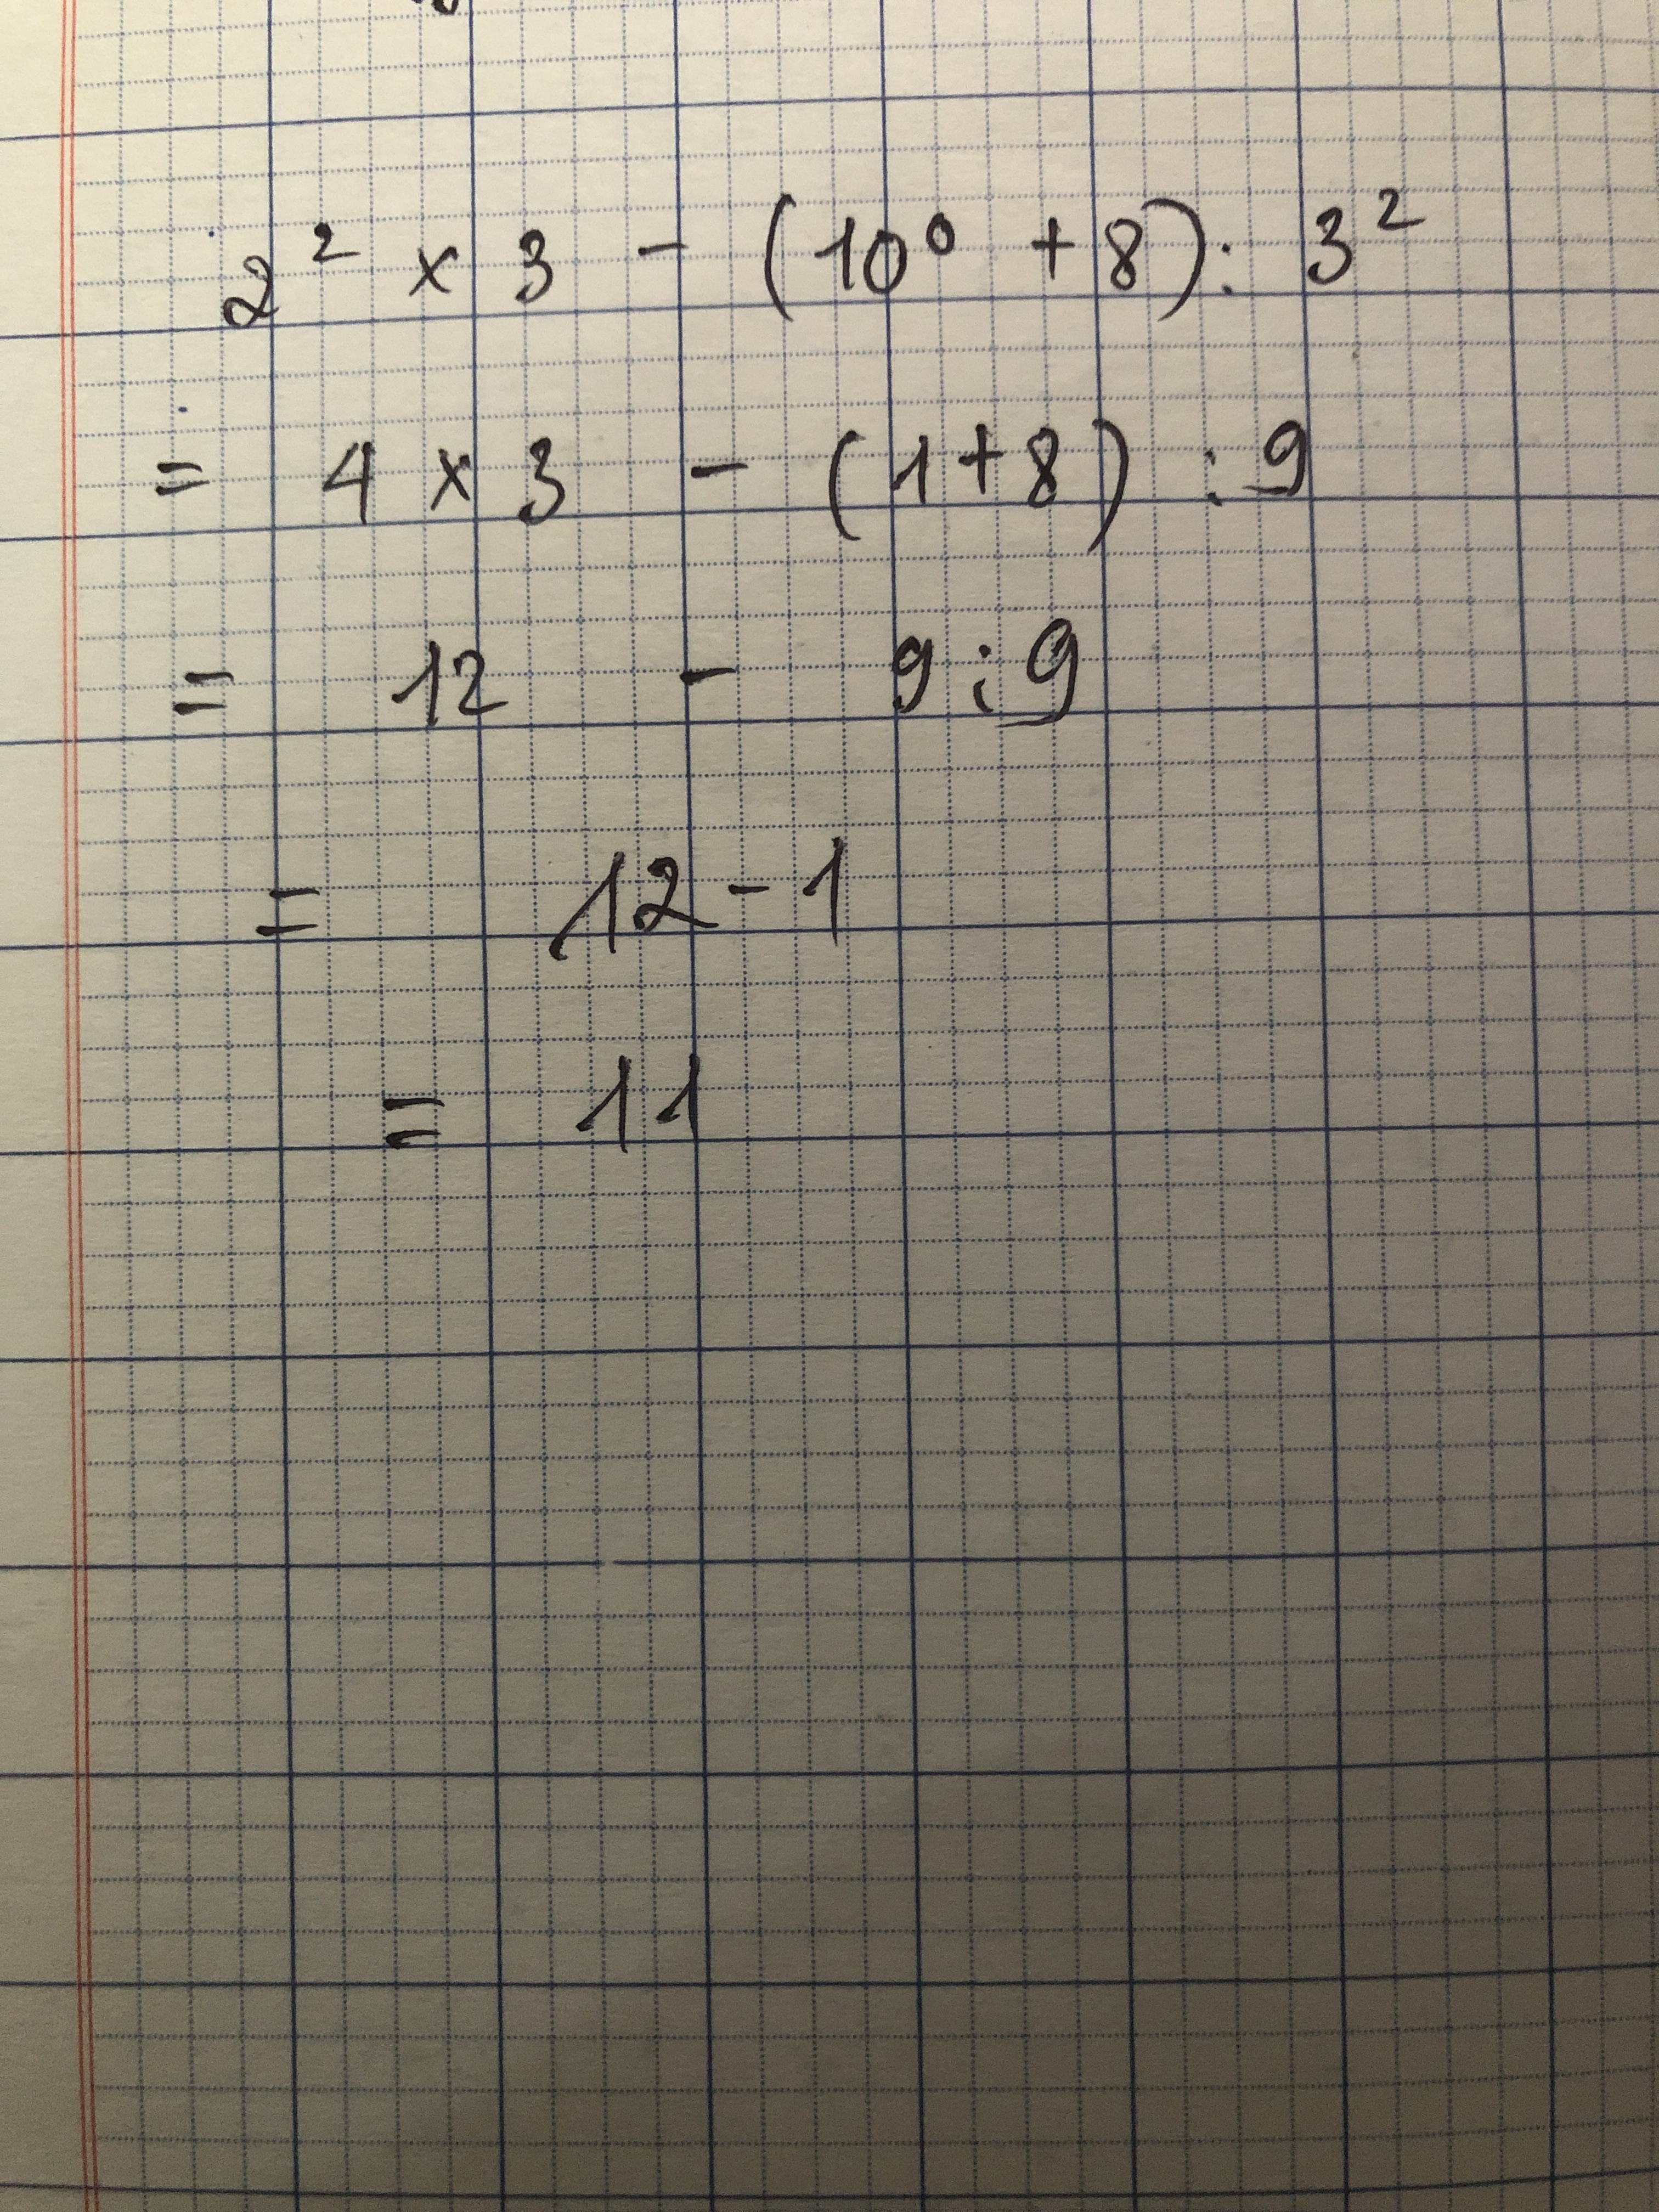 2² × 3 - (10⁰ + 8) : 3²
= 4 × 3 - (1+8) : 9
= 12 - 9 : 9
= 12 - 1
= 11